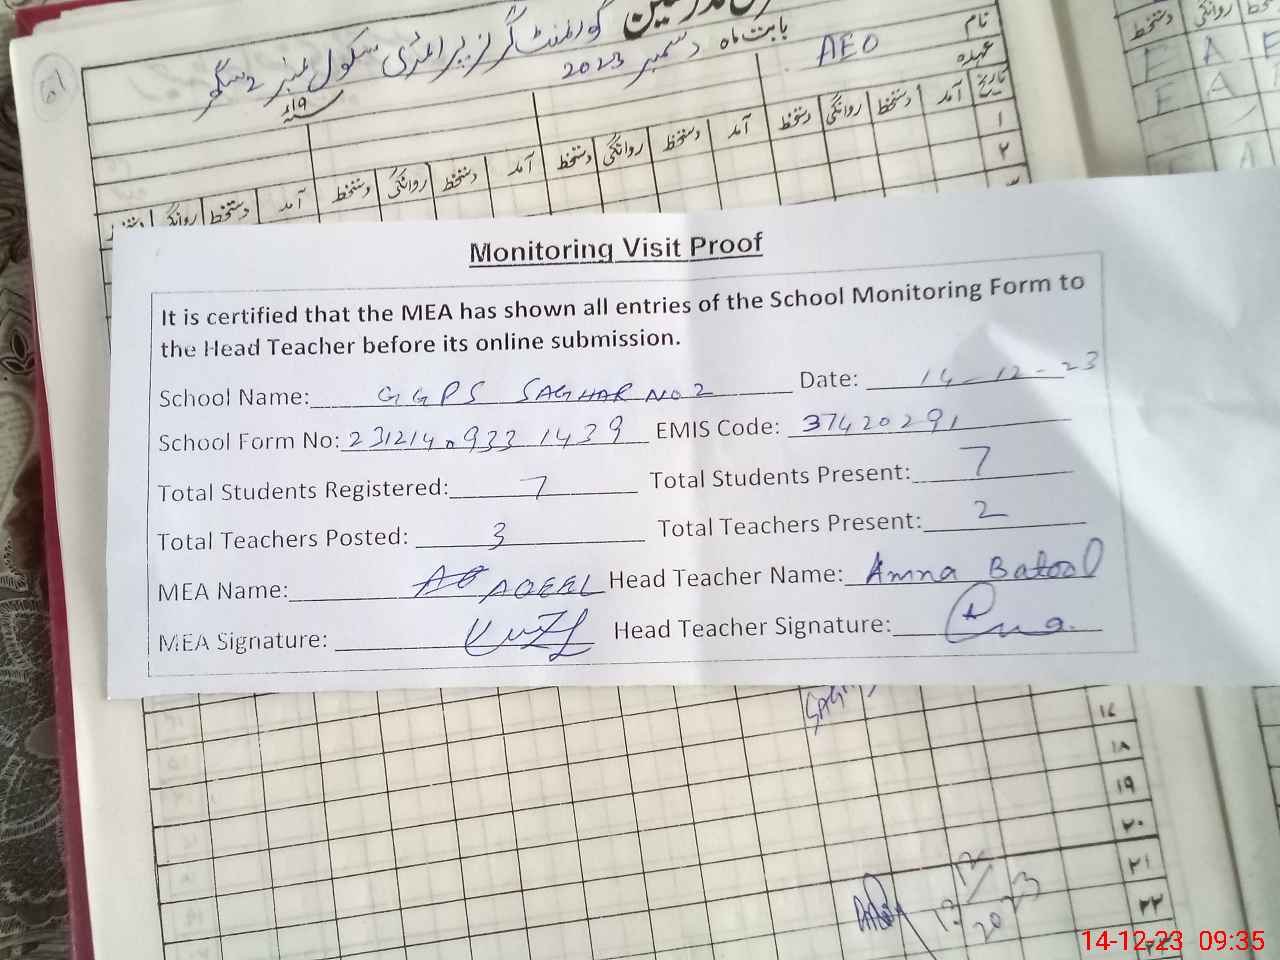 گورنمنٹ گرلز پرائمری سکول نمبر 2 سگھر
بابت ماہ دسمبر 2023
AEO
نام
عہدہ
تاریخ آمد دستخط روانگی دستخط آمد دستخط روانگی دستخط آمد دستخط روانگی دستخط آمد دستخط روانگی
۱
۲
دستخط روانگی
E A E
E A
Monitoring Visit Proof
It is certified that the MEA has shown all entries of the School Monitoring Form to
the Head Teacher before its online submission.
School Name: GGPS SAGHAR NO 2 Date: 14-12-23
School Form No: 23121409331439 EMIS Code: 37420291
Total Students Registered: 7 Total Students Present: 7
Total Teachers Posted: 3 Total Teachers Present: 2
MEA Name: AQEEL Head Teacher Name: Amna Batool
MEA Signature: Head Teacher Signature:
۱۸
۱۹
۲۰
۲۱
۲۲
14-12-23 09:35